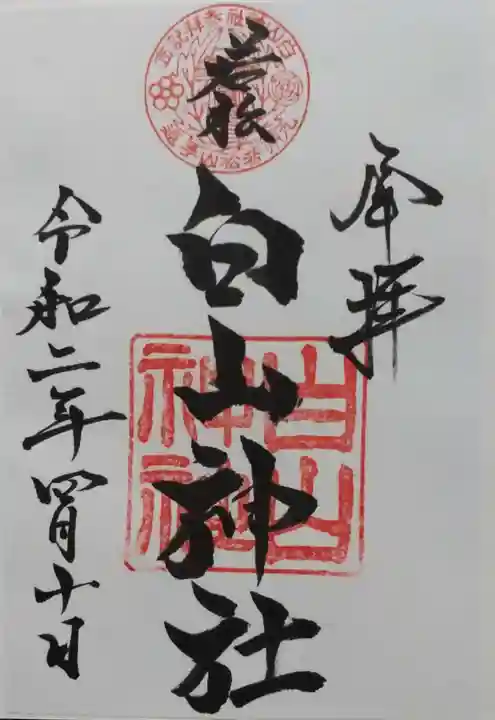 奉拝
若松
白山神社
白山
神社
令和二年四月十日